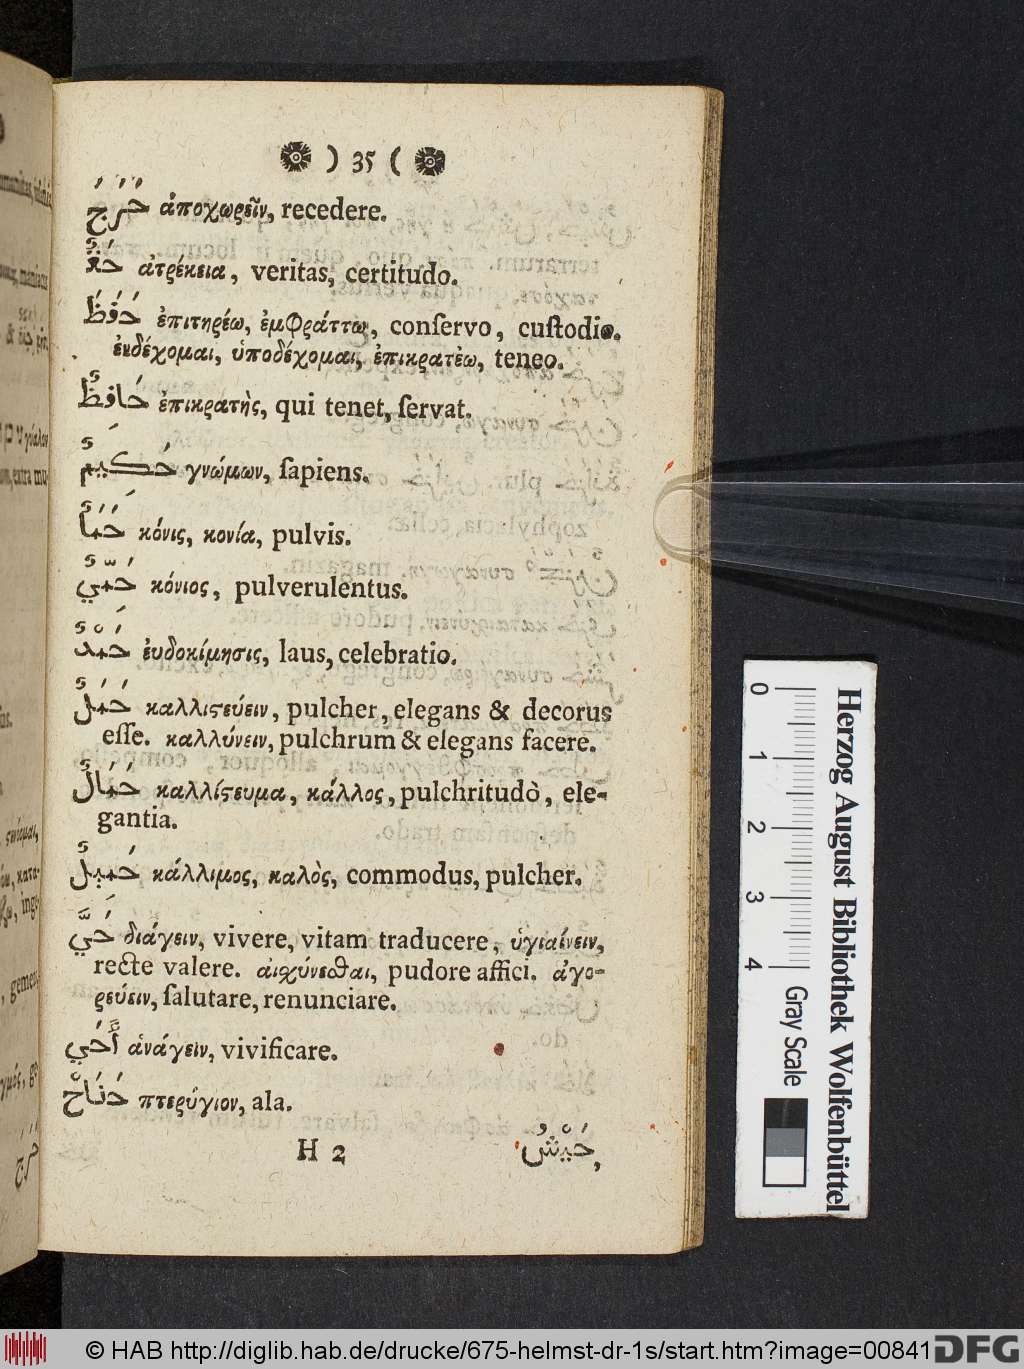 ) 35 (
خَرَجَ ἀποχωρεῖν, recedere.
ἀτρέκεια, veritas, certitudo.
حَفَظَ ἐπιτηρέω, ἐμφράττω, conſervo, cuſtodio.
ἐνδέχομαι, ὑποδέχομαι, ἐπικρατέω, teneo.
حَافِظٌ ἐπικρατὴς, qui tenet, ſervat.
حَكِيمٌ γνώμων, ſapiens.
κόνις, κονία, pulvis.
κόνιος, pulverulentus.
حَمْدٌ ἐυδοκίμησις, laus, celebratio.
καλλιϛεύειν, pulcher, elegans & decorus
eſſe. καλλύνειν, pulchrum & elegans facere.
καλλίϛευμα, κάλλος, pulchritudò, ele-
gantia.
κάλλιμος, καλὸς, commodus, pulcher.
حَيَّ διάγειν, vivere, vitam traducere, ὑγιαίνειν,
recte valere. αἰχύνεσθαι, pudore affici. ἀγο-
ρεύειν, ſalutare, renunciare.
ἀνάγειν, vivificare.
πτερύγιον, ala.
H 2
0 1 2 3 4
Gray Scale
Herzog August Bibliothek Wolfenbüttel
© HAB http://diglib.hab.de/drucke/675-helmst-dr-1s/start.htm?image=00841
DFG